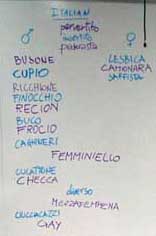 ITALIAN
pervertito
invertito
pederasta
♂ ♀
BUSONE
LESBICA
CUPIO
CAMIONARA
SAFFISTA
RICCHIONE
FINOCCHIO
RECION
BUCO
FROCIO
CAGHINERI
FEMMINIELLO
CULATTONE
CHECCA
diverso
MEZZAFEMMENA
GAY